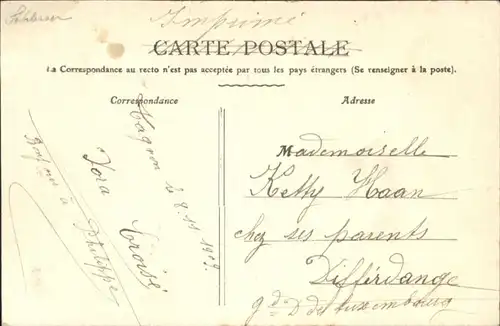 Imprimé
CARTE POSTALE
La Correspondance au recto n'est pas acceptée par tous les pays étrangers (Se renseigner à la poste).
Correspondance
Adresse
le 8. 11 1909.
Bonjour à
Philippe
Mademoiselle
Ketty Haan
chez ses parents
Differdange
gd. D de Luxembourg